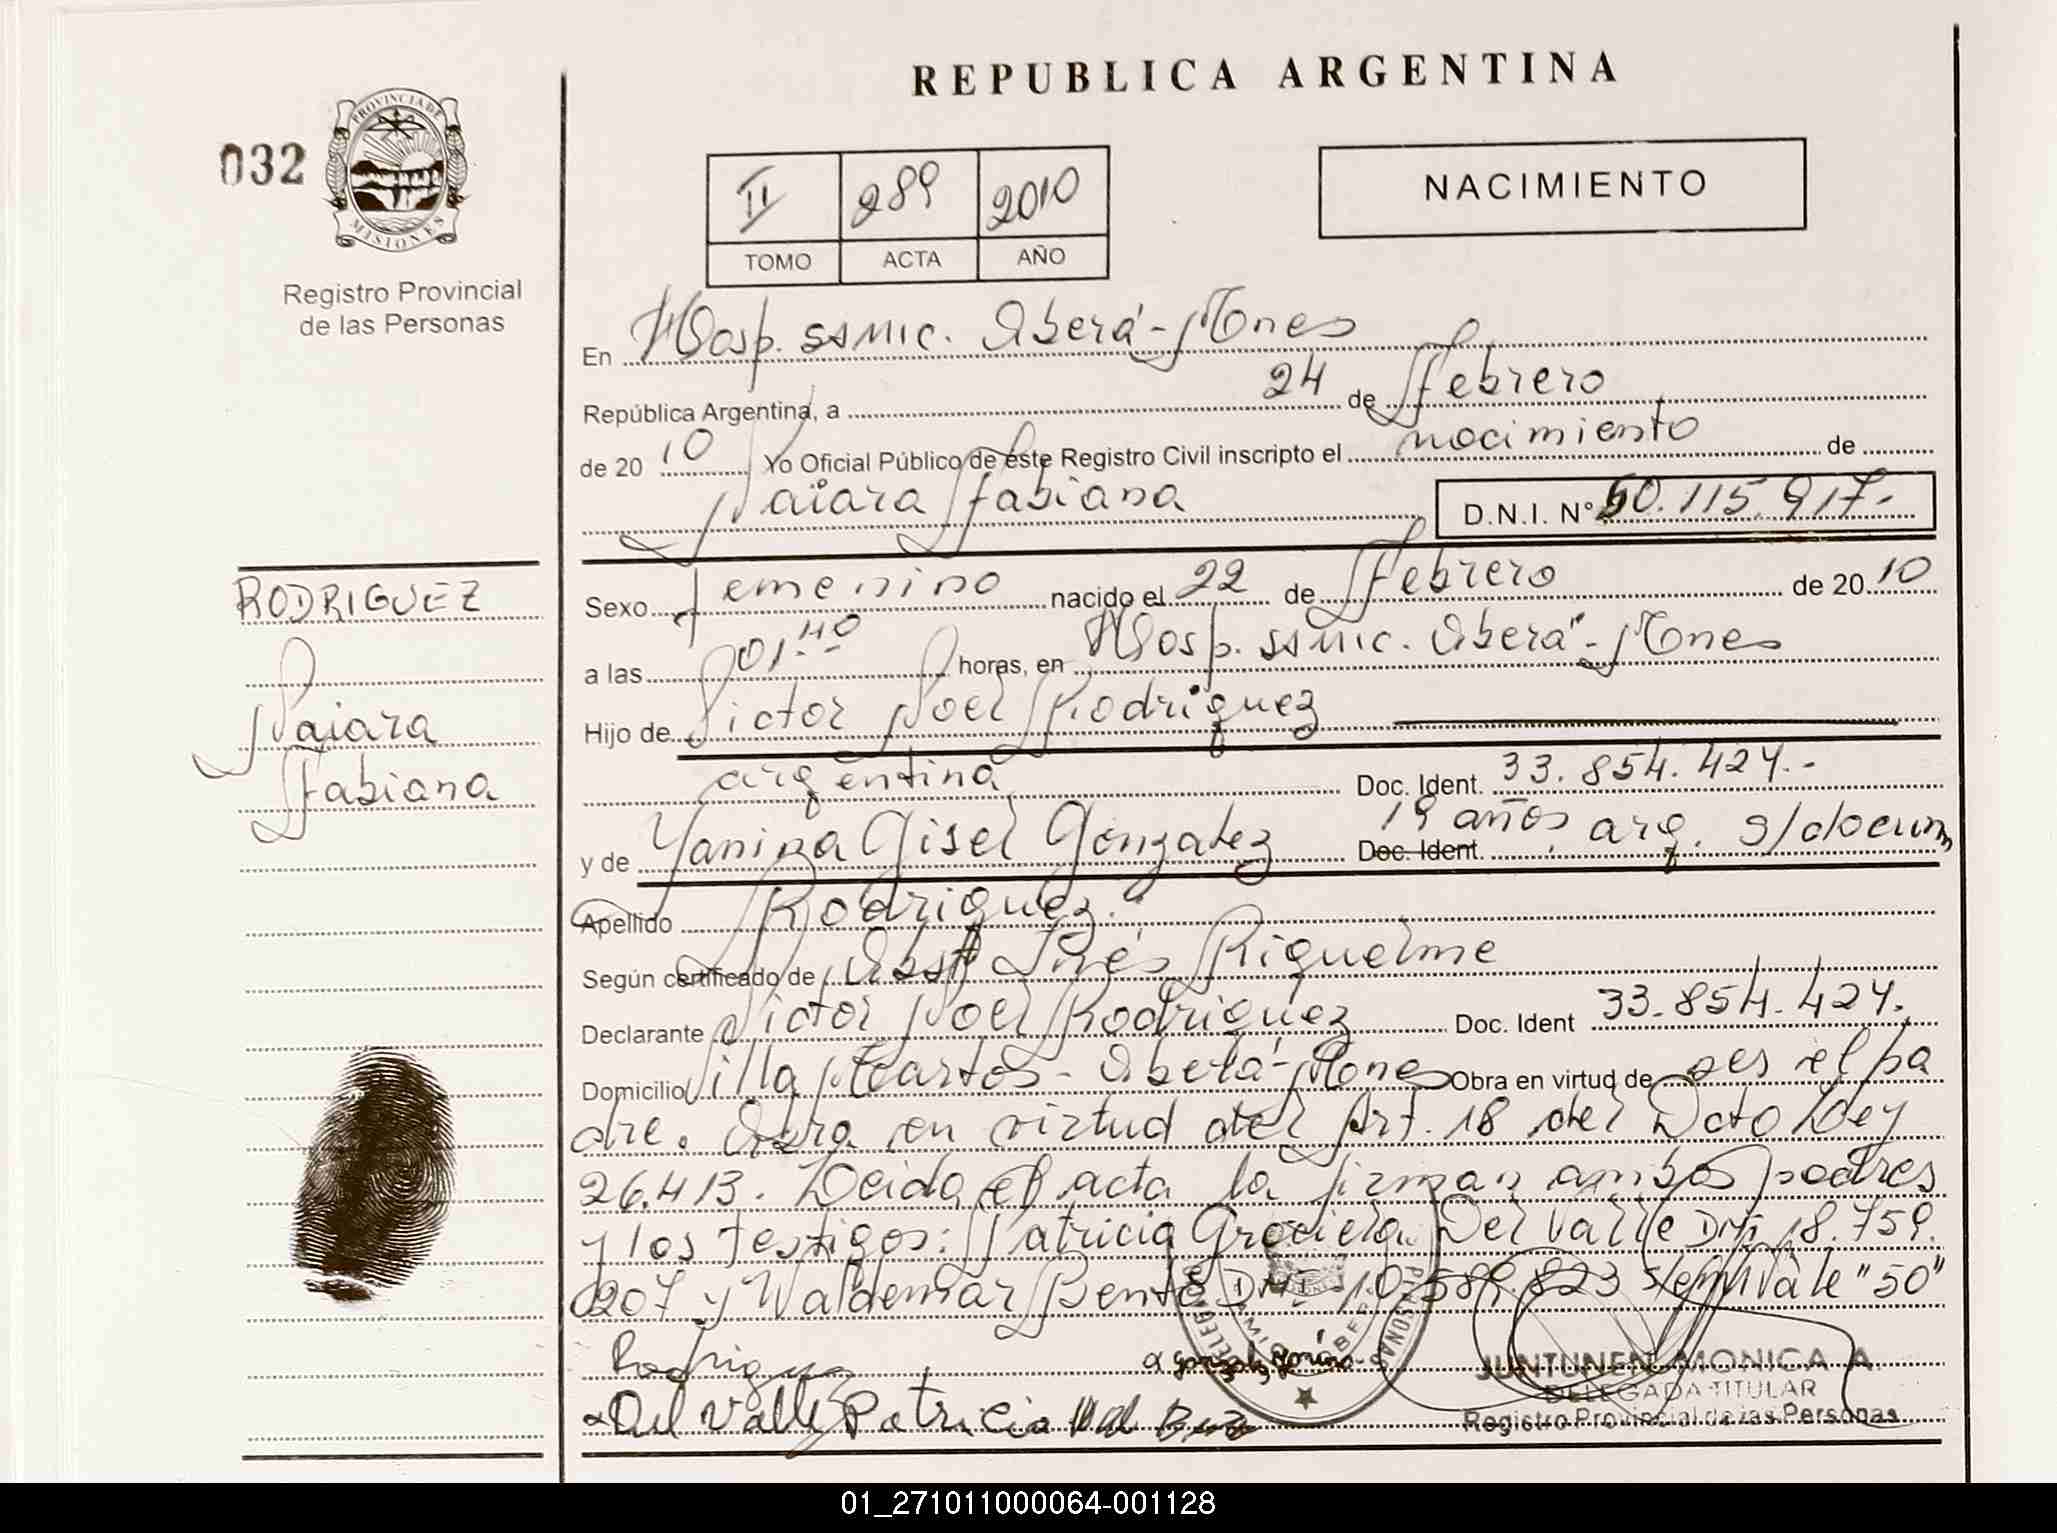 REPUBLICA ARGENTINA
032
PROVINCIA DE
MISIONES
Registro Provincial
de las Personas
II 289 2010
TOMO ACTA AÑO
NACIMIENTO
En Hosp. SSMIC. Oberá-Mones
República Argentina, a 24 de Febrero
de 2010 Yo Oficial Público de este Registro Civil inscripto el nacimiento de
Naiara Fabiana D.N.I. N° 50.115.917.-
RODRIGUEZ
Naiara
Fabiana
Sexo femenino nacido el 22 de Febrero de 2010
a las 01.40 horas, en Hosp. SSMIC. Oberá-Mones
Hijo de Victor Noel Rodriguez
argentina Doc. Ident. 33.854.424.-
y de Yanina Gisel Gonzalez 19 años arg. s/docum
Doc. Ident.
Apellido Rodriguez.
Según certificado de Obst Inés Riquelme
Declarante Victor Noel Rodriguez Doc. Ident 33.854.424.
Domicilio Villa Martos - Oberá-Mones Obra en virtud de ser el pa
dre. Obra en virtud del Art. 18 del Dcto Ley
26.413. Leida el acta la firman ambos padres
y los testigos: Patricia Graciela Del Valle DNI 18.759.
207 y Waldemar Bento DNI 10.589.823 s/enm Vale "50"
Rodriguez
Del Valle Patricia
JUNTUNEN MONICA A.
DELEGADA TITULAR
Registro Provincial de las Personas
01_271011000064-001128